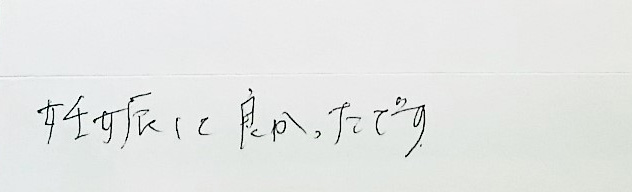 妊娠に良かったです